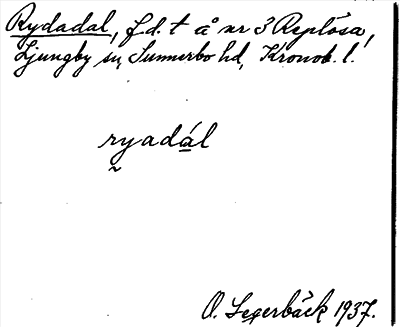 Rydadal, f.d. t å nr 3 Replösa,
Ljungby sn, Sunnerbo hd, Kronob. l.
ryadál
O. Segerbäck 1937.